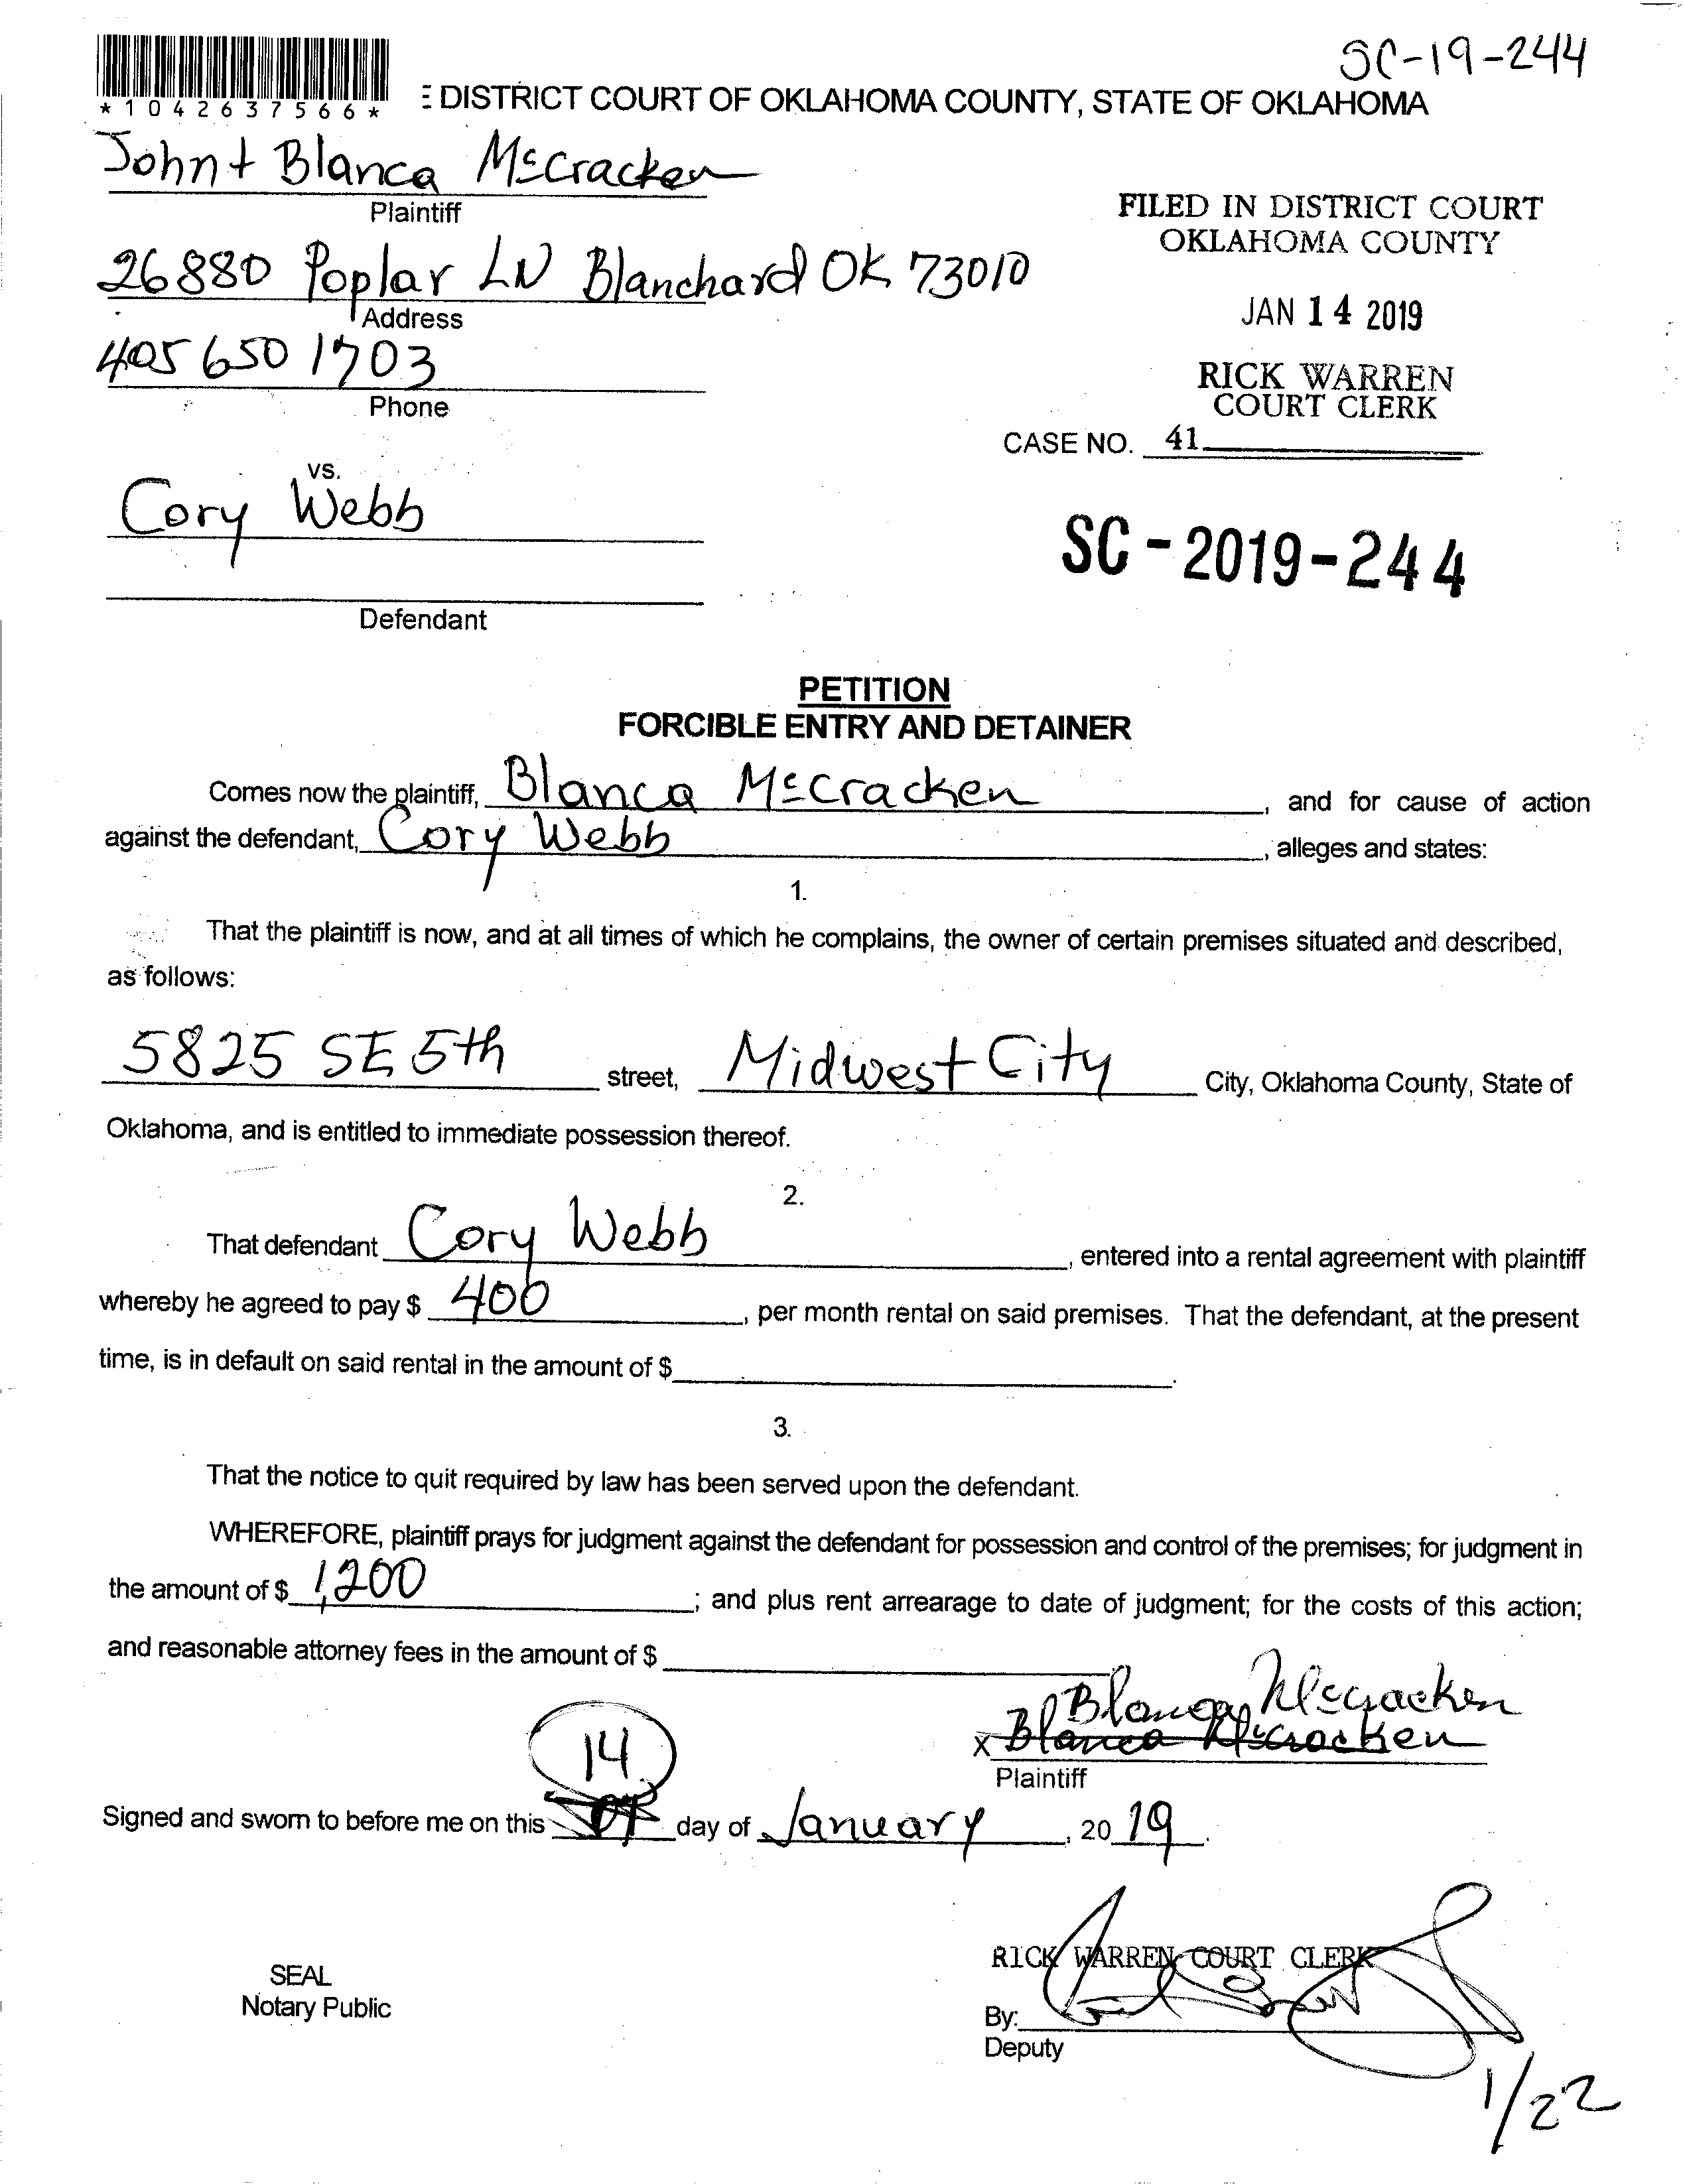 SC-19-244
*1042637566*
E DISTRICT COURT OF OKLAHOMA COUNTY, STATE OF OKLAHOMA
John + Blanca McCracken
Plaintiff
FILED IN DISTRICT COURT
OKLAHOMA COUNTY
26880 Poplar LN Blanchard OK 73010
Address
JAN 14 2019
405 650 1703
Phone
RICK WARREN
COURT CLERK
CASE NO. 41
vs.
Cory Webb
SC-2019-244
Defendant
PETITION
FORCIBLE ENTRY AND DETAINER
Comes now the plaintiff, Blanca McCracken, and for cause of action
against the defendant, Cory Webb, alleges and states:
1.
That the plaintiff is now, and at all times of which he complains, the owner of certain premises situated and described,
as follows:
5825 SE 5th street, Midwest City City, Oklahoma County, State of
Oklahoma, and is entitled to immediate possession thereof.
2.
That defendant Cory Webb, entered into a rental agreement with plaintiff
whereby he agreed to pay $ 400, per month rental on said premises. That the defendant, at the present
time, is in default on said rental in the amount of $.
3.
That the notice to quit required by law has been served upon the defendant.
WHEREFORE, plaintiff prays for judgment against the defendant for possession and control of the premises; for judgment in
the amount of $ 1,200; and plus rent arrearage to date of judgment; for the costs of this action;
and reasonable attorney fees in the amount of $
Blanca McCracken
x Blanca McCracken
Plaintiff
14
Signed and sworn to before me on this day of January, 2019.
RICK WARREN COURT CLERK
SEAL
Notary Public
By:
Deputy
1/22